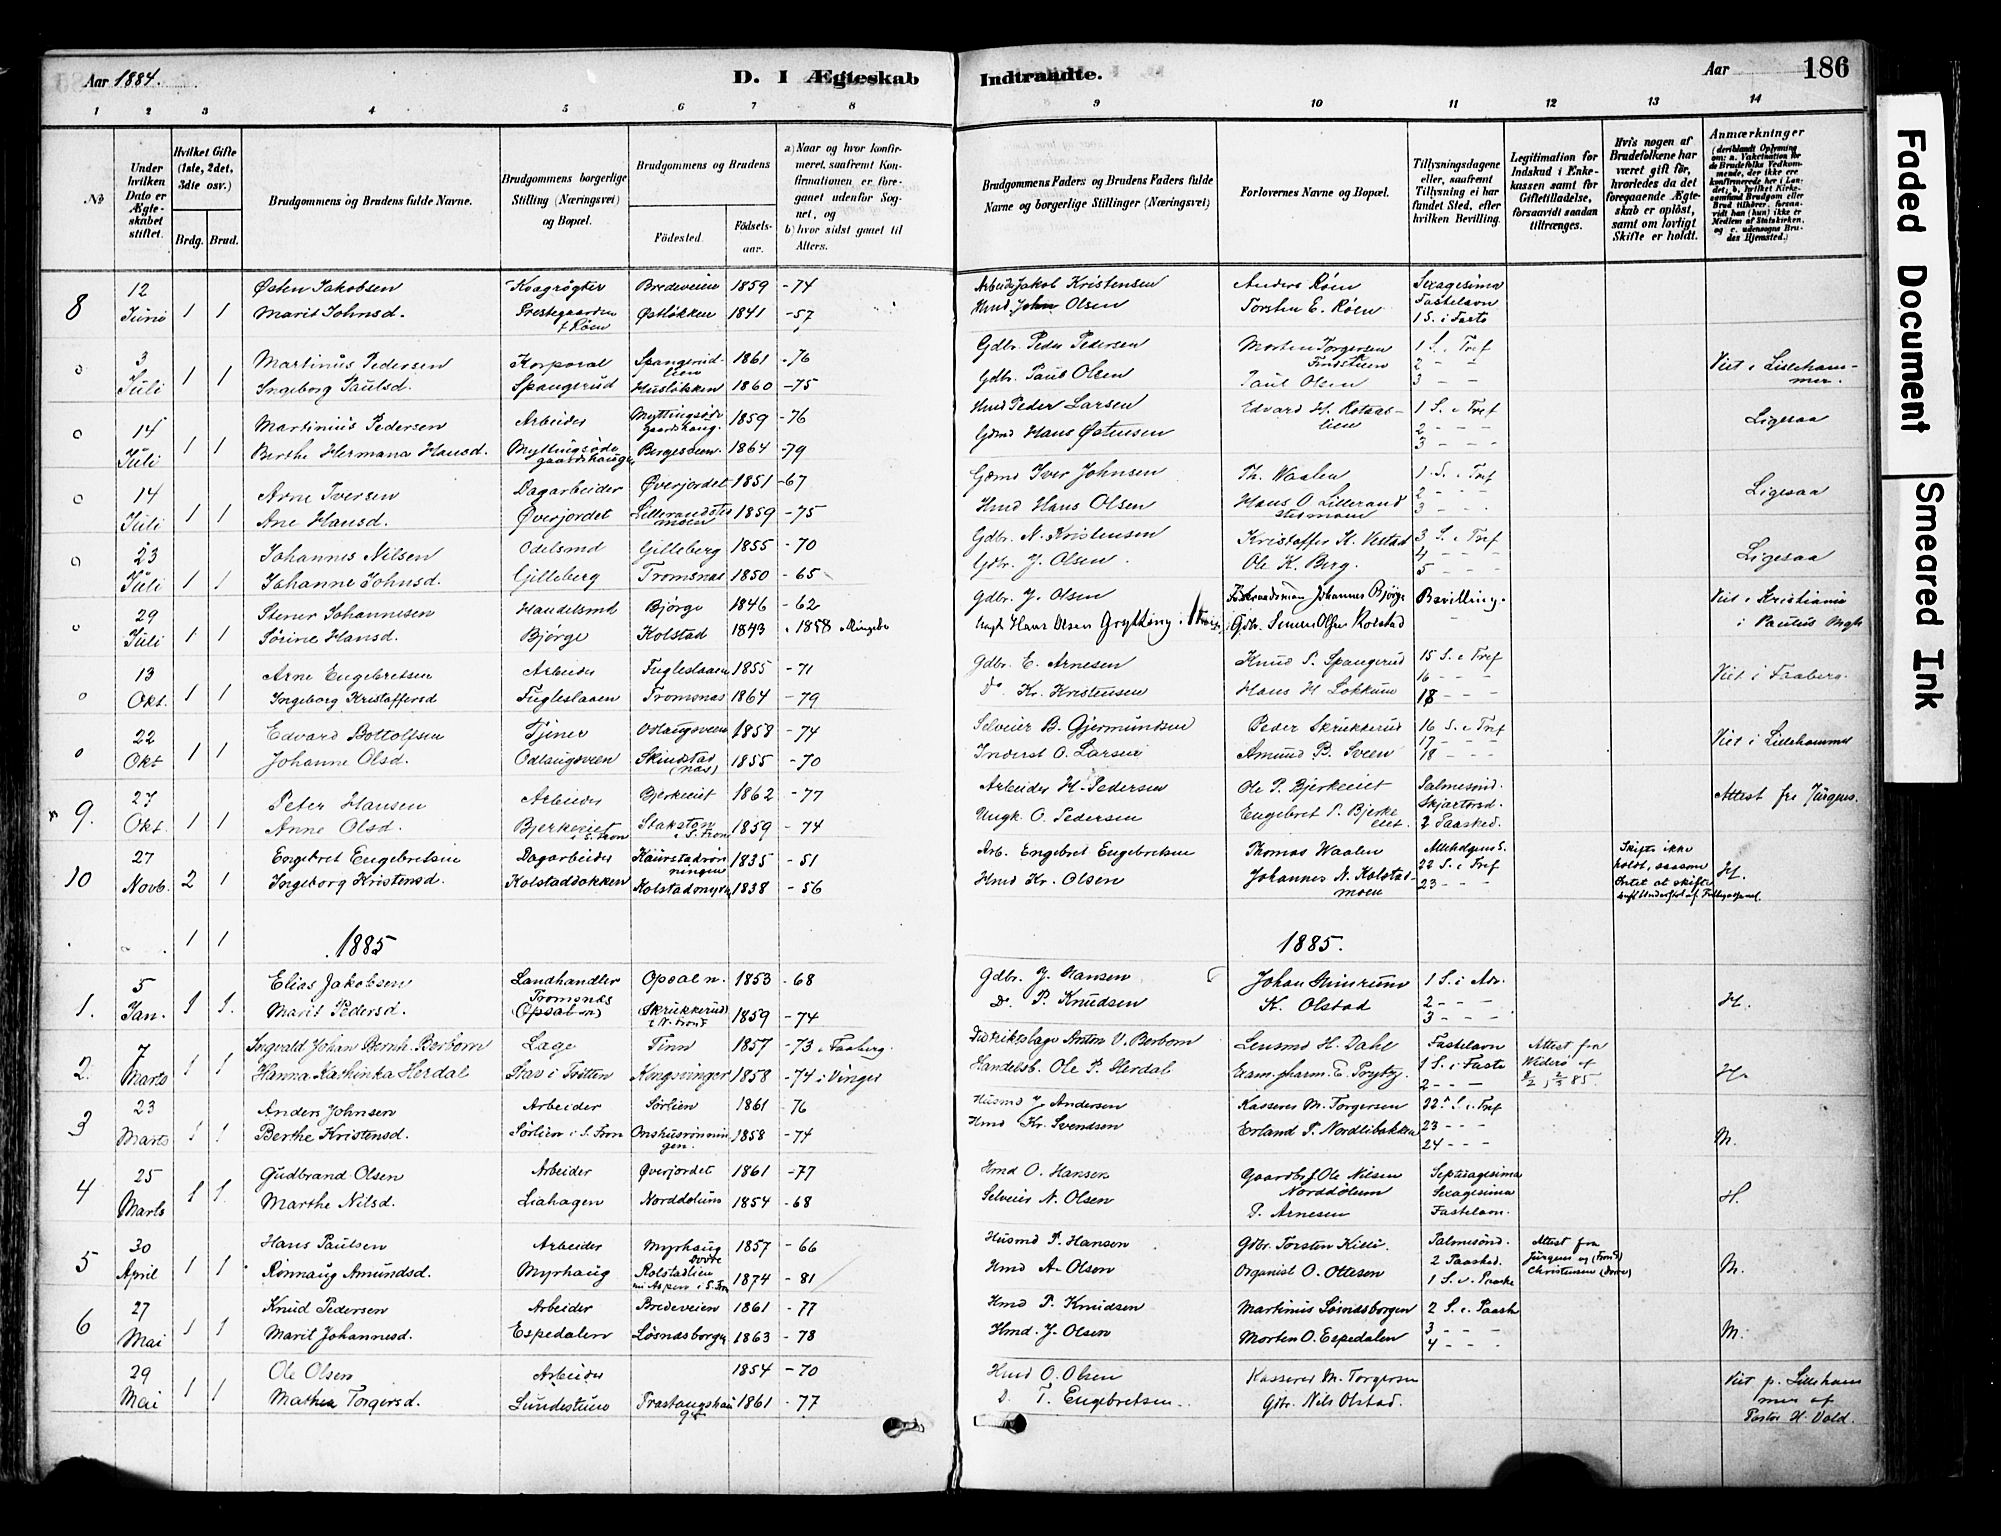 Aar 1884.
D. I Ægteskab Indtraadte.
Aar 186
1 2 3 4 5 6 7 8 9 10 11 12 13 14
No
Under hvilken Dato er Ægteskabet stiftet.
Hvilket Gifte (1ste, 2det, 3die osv.)
Brdg. Brud.
Brudgommens og Brudens fulde Navne.
Brudgommens borgerlige Stilling (Næringsvei) og Bopæl.
Brudgommens og Brudens
Fødested. Fødselsaar.
a) Naar og hvor konfirmeret, saafremt Konfirmationen er foregaaet udenfor Sognet, og
b) hvor sidst gaaet til Alters.
Brudgommens Faders og Brudens Faders fulde Navne og borgerlige Stillinger (Næringsvei)
Forlovernes Navne og Bopæl.
Tillysningsdagene eller, saafremt Tillysning ei har fundet Sted, efter hvilken Bevilling.
Legitimation for Indskud i Enkekassen samt for Giftetilladelse, forsaavidt saadan tiltrænges.
Hvis nogen af Brudefolkene har været gift før, hvorledes da det foregaaende Ægteskab er opløst, samt om lovligt Skifte er holdt.
Anmærkninger (deriblandt Oplysning om: a. Vakcination for de Brudefolks Vedkommende, der ikke ere konfirmerede her i Landet; b. hvilket Kirkesamfund Brudgom eller Brud tilhører, forsaavidt han (hun) ikke er Medlem af Statskirken, og c. udensogns Brudes Hjemsted.)
8 12 Juni 1 1 Østen Jakobsen Kvagrøgter Bredeveien 1859 -74 Arbeid. Jakob Kristensen Anders Röen Sexagesima
Marit Johnsd. Prestegaarden Østløkken 1841 -57 Hmd John Olsen Torsten E. Röen Fastelavn
1 S. i Faste
o 3 Juli 1 1 Martinus Pedersen Korporal Spangerudlien 1861 -76 Gdbr. Peder Pedersen Morten Torgersen 1 S. i Tref Viet i Lillehammer.
Ingeborg Paulsd. Spangerud Husløkken 1860 -75 Gdbr. Paul Olsen Paul Olsen 2 - - 3 - -
o 14 Juli 1 1 Martinius Pedersen Arbeider 1859 -76 Hmd Peder Larsen Edvard H. 1 S. i Tref Ligesaa
Berthe Hermana Hansd. Bergeseien 1864 -79 Gdmd Hans Østensen 2 - - 3 - -
o 14 Juli 1 1 Arne Iversen Dagarbeider Øverjordet 1851 -67 Gdmd Iver Johnsen Th. Waalen 1 S. i Tref Ligesaa
Ane Hansd. Øverjordet 1859 -75 Hmd Hans Olsen Hans O. 2 - - 3 - -
o 23 Juli 1 1 Johannes Nilsen Odelsmd Gilleberg 1855 -70 Gdbr. N. Kristensen Kristoffer K. Vestad 3 S. i Tref Ligesaa
Johanne Johnsd. Gilleberg Tromsnas 1850 -65 Gdbr. J. Olsen Ole K. Berg. 4 - - 5 - -
o 29 Juli 1 1 Stener Johannesen Handelsmd Bjørge 1846 -62 Gdbr. J. Olsen Johannes Bjørge Bevilling. Viet i Kristiania
Sørine Hansd. Bjørge Kolstad 1843 1858 Ringebo Hans Olsen Gdbr. Simen Olsen Kolstad - i Paulus Mgh
o 13 Okt. 1 1 Arne Engebretsen Arbeider Fugleslaaen 1855 -71 Gdbr. E. Arnesen Knud P. Spangerud 15 S. i Tref Viet i Faaberg.
Ingeborg Kristoffersd Fugleslaaen Tromsnas 1864 -79 Do Kr. Kristensen Hans H Løkkum 16 - - 18 - -
o 22 Okt 1 1 Edvard Bottolfsen Tjener Odlaugsveen 1858 -74 Selveier B. Gjermundsen Peder Skrukkerud 16 S. i Tref Viet i Lillehammer
Johanne Olsd. Odlaugsveen Skindstad 1855 -70 Inderst O. Larsen Amund B. Sveen 17 - - 18 - -
9. 27 Okt. 1 1 Peter Hansen Arbeider Bjerkeeiet 1862 -77 Arbeider H. Pedersen Ole P. Bjerkeeiet Palmesønd. Attest fra Jürgens.
Anne Olsd. Bjerkeeiet i S. Fron i S. Fron 1859 -74 Ungk. O. Pedersen Engebret P. Bjerkeeiet. Skjærtorsd. 2 Paasked.
10 27 Novb. 2 1 Engebret Engebretsen Dagarbeider 1835 -51 Arb. Engebret Engebretsen Thomas Waalen Allehelgens S. Skifte ikke
Ingeborg Kristensd. Kolstadløkken 1838 -56 Hmd Kr. Olsen Johannes N. Kolstadmoen 22 S. i Tref 23 - - holdt, saasom Intet at skifte H.
1 1 1885 1885.
1. 5 Jan. 1 1. Elias Jakobsen Landhandler Opsal n. 1853 -68 Gdbr. J. Hansen Johan 1 S. i Adv.
Marit Pedersd. Tromsnæs Opsal (n) (Skrukkerud i N. Fron) 1859 -74 Do P. Knudsen K. Olstad 2 - - 3 - - H.
2. 7 Marts 1 1 Ingvald Johan Bernh. Borbom Læge Tinn 1857 -73 i Faaberg. Distriktslæge Anton V. Borbom Lensmd H. Dahl Fastelavn Attest fra
Hanna Kathinka Herdal Stav i Tretten Kongsvinger 1858 -74 i Vinger Handelsb. Ole P. Herdal Exam. pharm. E. 1 S. i Faste 2 - - Widerö H.
3 23 Marts 1 1 Anders Johnsen Arbeider Sørlien 1861 -76 Husmd J. Andersen Kasserer M. Torgersen 22 S. i Tref
Berthe Kristensd. Sørlien i S. Fron Onshusrønningen. 1858 -74 Hmd Kr. Svendsen Erland P. Nordlibakken 23 - - 24 - - M.
4 25 Marts 1 1. Gudbrand Olsen Arbeider Øverjordet 1861 -77 Hmd O. Hansen Gaardbr. Ole Nilsen Norddølum Septuagesima
Marthe Nilsd. Liahagen Norddølum 1854 -68 Selveier N. Olsen P. Arnesen Sexagesima Fastelavn. H.
5 30 April 1 1 Hans Paulsen Arbeider Myrhaug 1857 -66 Husmd P. Hansen Gdbr. Torsten Palmesønd. Attest fra
Rønnaug Amundsd. Myrhaug Kolstadlien 1874 -81 Hmd A. Olsen Organist O. Ottesen 2 Paasked. 1 S. e. Paaske Jürgens og (Fron) Christensen (Dovre) M.
6 27 Mai 1 1 Knud Pedersen Arbeider Bredeveien 1861 -77 Hmd P. Knudsen Martinus Løsnæsborgen 2 S. e. Paaske
Marit Johannesd. Espedalen Løsnæsborgen 1863 -78 Hmd. J. Olsen Morten O. Espedalen 3 - - 4 - - M.
29 Mai 1 1 Ole Olsen Arbeider 1854 -70 Hmd O. Olsen Kasserer M. Torgersen Viet p. Lillehammer af
Mathea Torgersd. Lundestuen 1861 -77 D. T. Engebretsen. Gdbr. Nils Olstad. Pastor H. Vold.
Faded Document
Smeared Ink